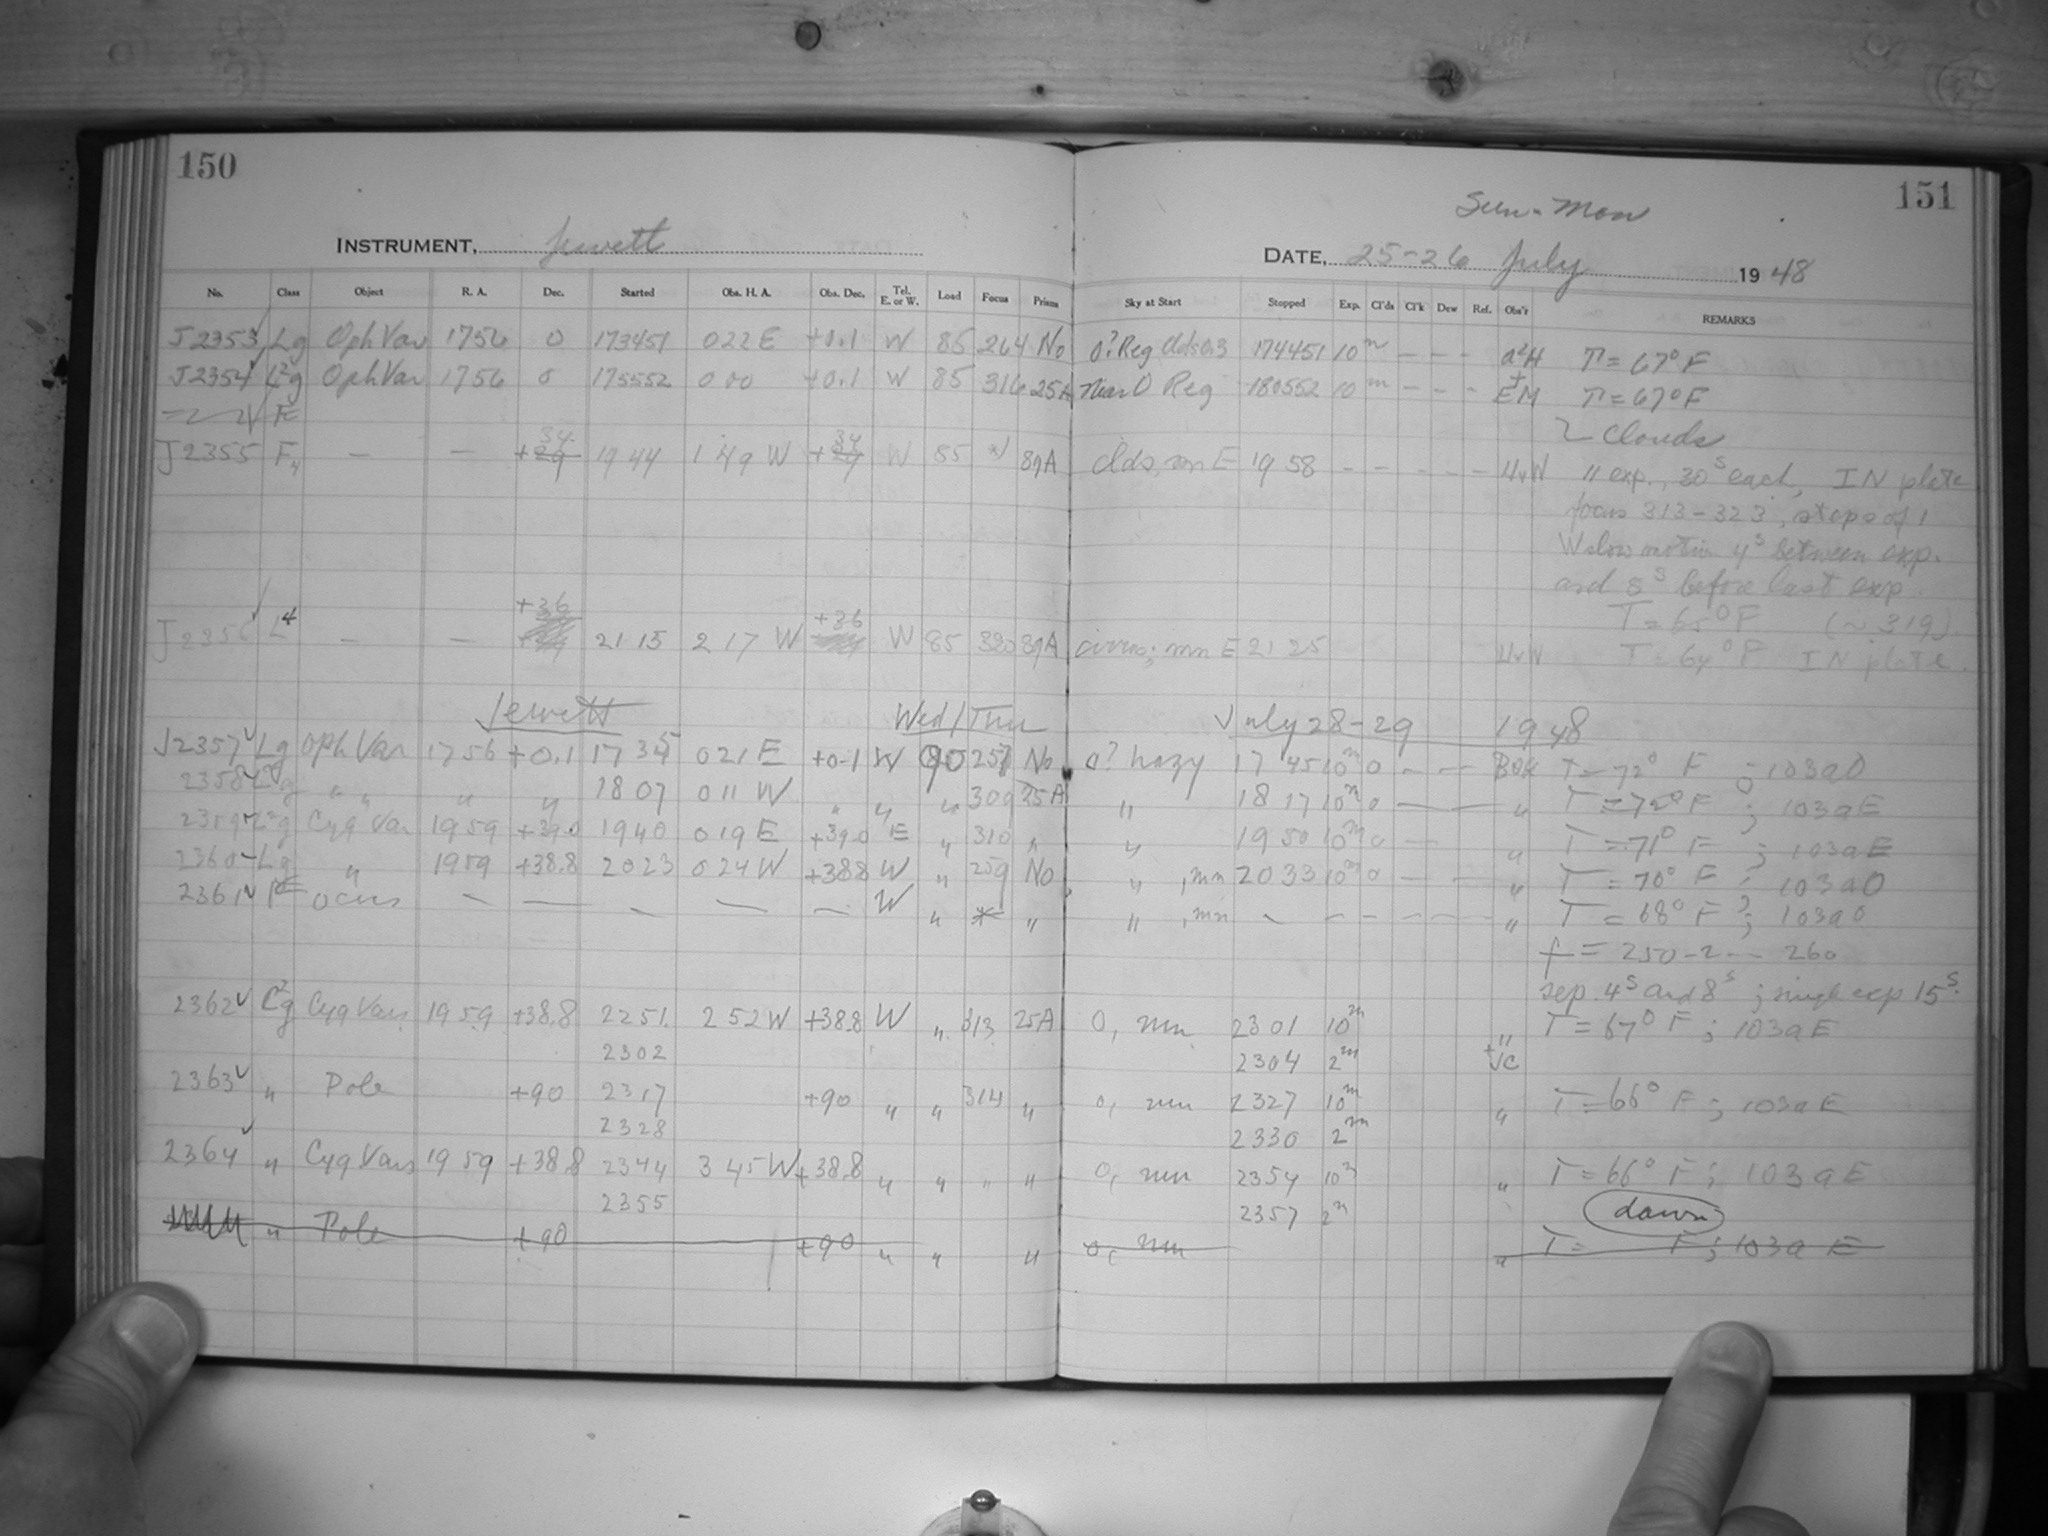 150
151
Sun-Mon
INSTRUMENT, Jewett
DATE, 25-26 July 1948
No. Class Object R. A. Dec. Started Obs. H. A. Obs. Dec. Tel. E. or W. Load Focus Prism Sky at Start Stopped Exp. Cl'ds Cl'k Dew Ref. Obs'r REMARKS
J2353 Lg Oph Var 1756 0 173451 022 E +0.1 W 85 264 No 0? Reg 174451 10m - - - T = 67° F
J2354 L²g Oph Var 1756 0 175552 0 00 +0.1 W 85 316 25A near 0 Reg 180552 10m - - - EM T = 67° F
clouds
J2355 F4 — — 34 +29 1944 1 49 W 34 +29 W 85 * 89A clds, mn E 1958 - - - - - HvW 11 exp., 30s each, IN plate
focus 313-323, steps of 1
W slow motion 4s between exp.
and 8s before last exp.
T = 65° F (~319)
J2356 L4 — — +36 2115 2 17 W +36 W 85 320 89A cirrus; mn E 2125 HvW T = 64° F IN plate.
Jewett Wed/Thu July 28-29 1948
J2357 Lg Oph Var 1756 +0.1 1735 021 E +0.1 W 90 257 No 0? hazy 17 45 10m 0 — — BOK T = 72° F ; 103aO
2358 L²g " " " " 1807 011 W " " " 309 25A " 18 17 10m 0 — — " T = 72° F ; 103aE
2359 L²g Cyg Var 1959 +39.0 1940 019 E +39.0 E " 310 " " 19 50 10m 0 — " T = 71° F ; 103aE
2360 Lg " 1959 +38.8 2023 024 W +38.8 W " 259 No " , mn 2033 10m 0 — — " T = 70° F ; 103aO
2361 Focus — — — — — W " * " " , mn - - - - - - " T = 68° F ; 103aO
f = 250-2--- 260
sep. 4s and 8s ; single exp 15s.
2362 L²g Cyg Vars 1959 +38.8 2251 2 52 W +38.8 W " 313 25A 0, mn 2301 10m " T = 67° F ; 103aE
2302 2304 2m +VC
2363 " Pole +90 2317 +90 " " 314 " 0, mn 2327 10m " T = 66° F ; 103aE
2328 2330 2m
2364 " Cyg Vars 1959 +38.8 2344 3 45 W +38.8 " " " " 0, mn 2354 10m " T = 66° F ; 103aE
2355 2357 2m dawn
" Pole +90 +90 " " " 0, mn " T = F ; 103aE